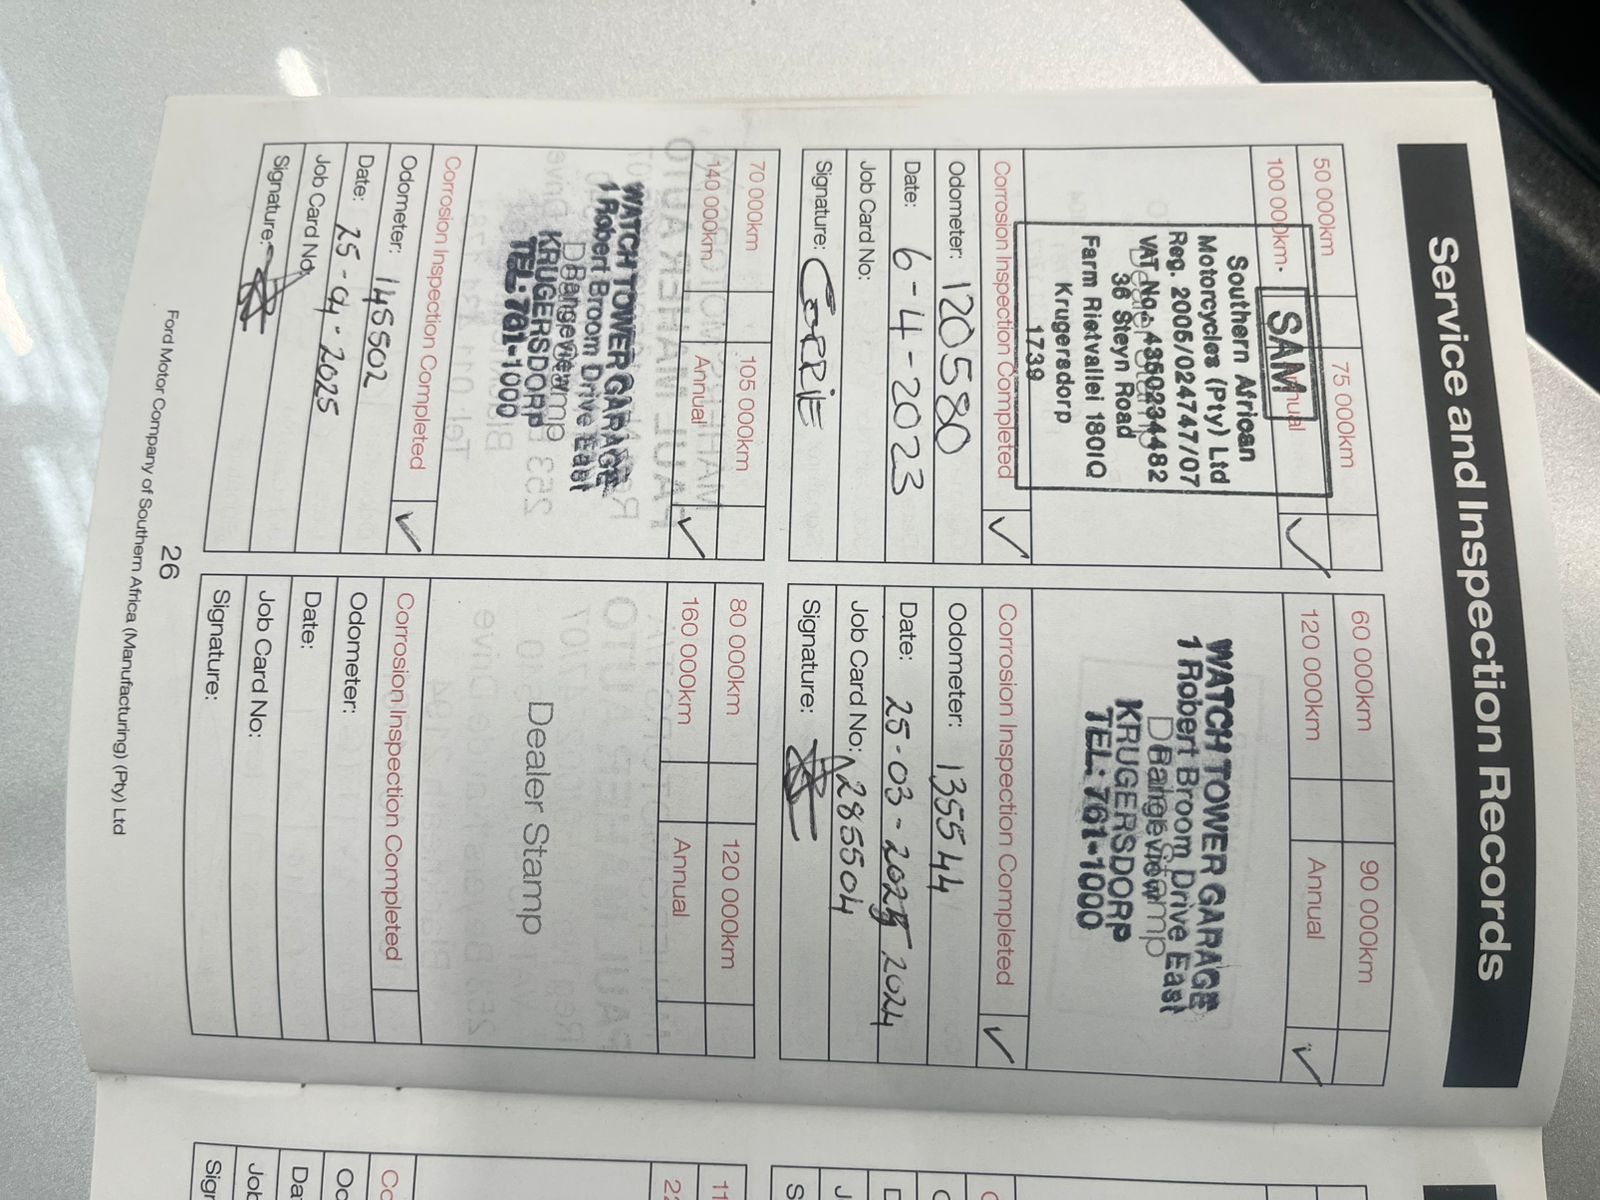 Service and Inspection Records
50 000km
75 000km
100 000km
nual
✓
SAM
Southern African
Motorcycles (Pty) Ltd
Reg. 2006/024747/07
VAT No. 4350234482
36 Steyn Road
Farm Rietvallei 180IQ
Krugersdorp
1739
Corrosion Inspection Completed ✓
Odometer: 120580
Date: 6-4-2023
Job Card No:
Signature: CORRIE
60 000km
90 000km
120 000km
Annual
✓
WATCH TOWER GARAGE
1 Robert Broom Drive East
Rangeview
KRUGERSDORP
TEL: 761-1000
Dealer Stamp
Corrosion Inspection Completed ✓
Odometer: 135544
Date: 25-03-2025 2024
Job Card No: 285504
Signature:
70 000km
105 000km
140 000km
Annual
✓
WATCH TOWER GARAGE
1 Robert Broom Drive East
Rangeview
KRUGERSDORP
TEL: 761-1000
Corrosion Inspection Completed ✓
Odometer: 145502
Date: 25-04-2025
Job Card No:
Signature:
80 000km
120 000km
160 000km
Annual
Dealer Stamp
Corrosion Inspection Completed
Odometer:
Date:
Job Card No:
Signature:
26
Ford Motor Company of Southern Africa (Manufacturing) (Pty) Ltd